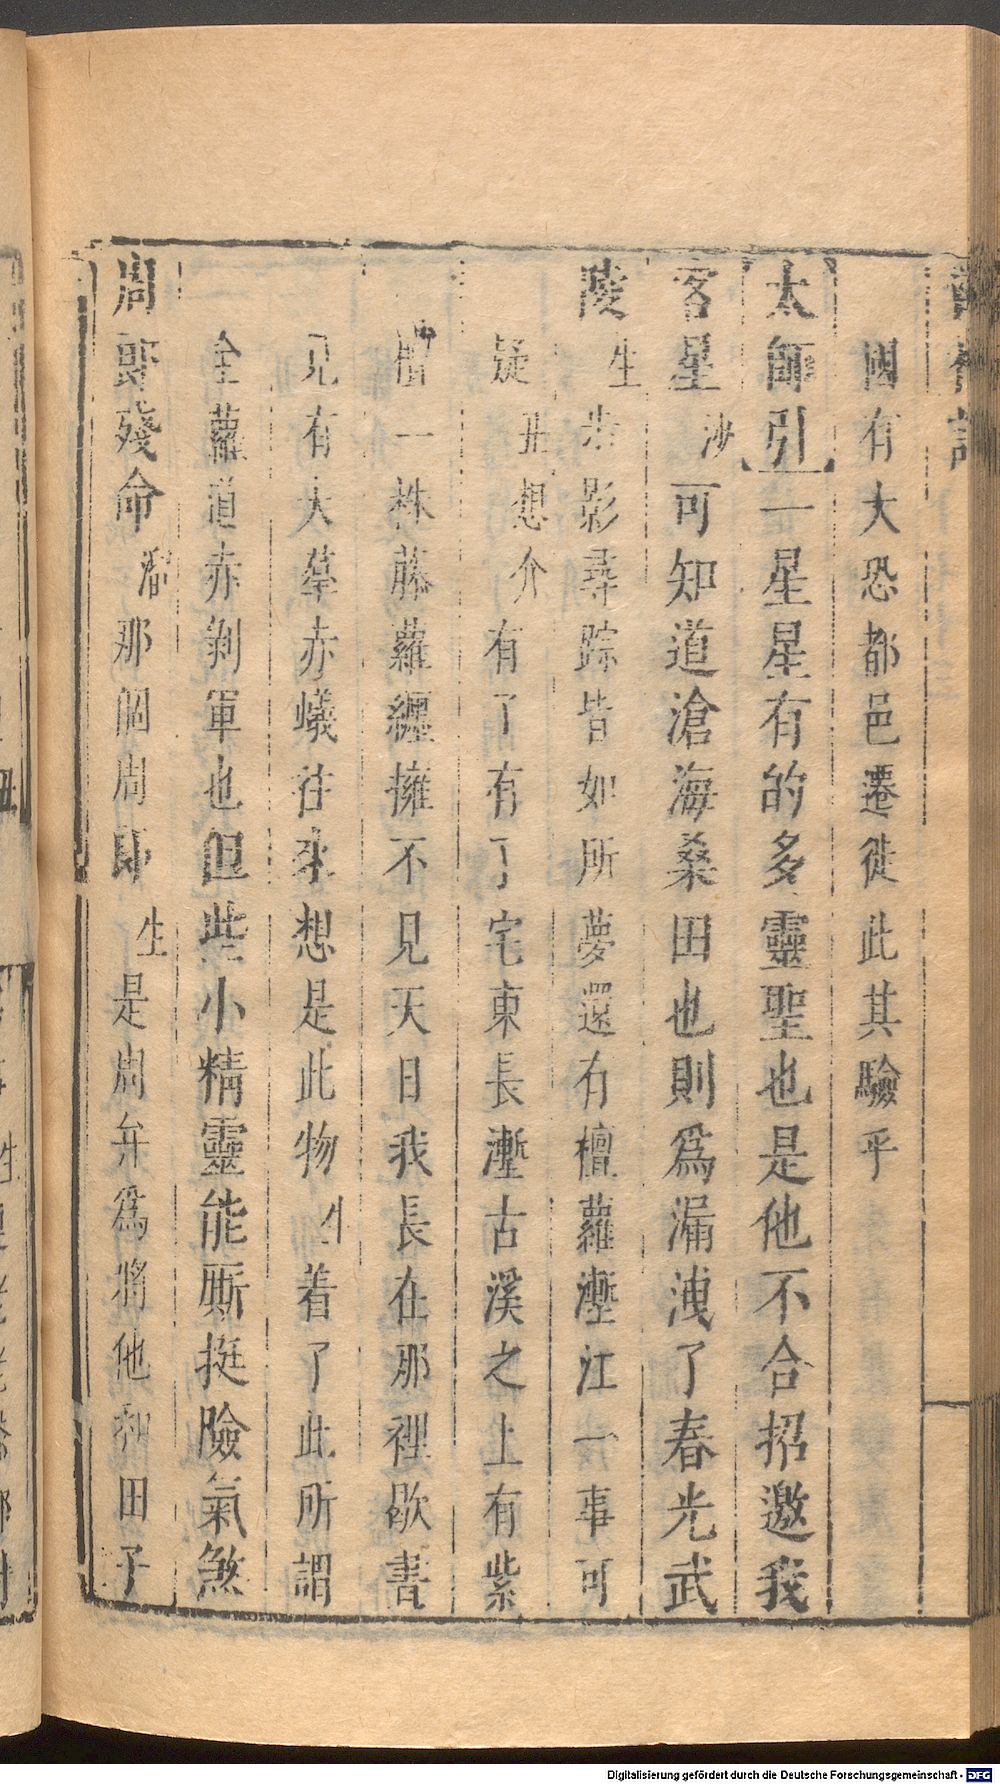 國有大恐都邑遷徙此其驗乎
太師引一星星有的多靈聖也是他不合招邀我
客星沙可知道滄海桑田也則爲漏洩了春光武
陵生步影尋踪皆如所夢還有檀蘿壍江一事可
疑丑想介有了有了宅東長壍古溪之上有紫
檀一株藤蘿纏擁不見天日我長在那裡歇書
見有大羣赤蟻往來想是此物生着了此所謂
全蘿道赤剝軍也但些小精靈能厮挺險氣煞
周郎殘命溜那個周郎生是周弁爲將他和田子
Digitalisierung gefördert durch die Deutsche Forschungsgemeinschaft - DFG